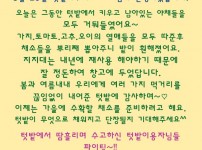 오늘은 그동안 텃밭에서 키우고 남아있는 야채들을
모두 거둬들였어요~
가지,토마토,고추,오이의 열매들을 모두 따준후
채소들을 뿌리째 뽑아주니 밭이 훤해졌어요.
지주대는 내년에 재사용 해야하기 때문에
잘 정돈하여 창고에 두었답니다.
봄과 여름내내 우리에게 여러 가지 먹거리를
끊임없이 내어준 텃밭에 감사하며♡
이제는 가을에 수확할 채소를 준비하려고 해요.
텃밭이 무엇으로 채워지고 단장될지 기대해주세요^^
텃밭에서 땀흘리며 수고하신 텃밭이용자님들
파이팅~!!